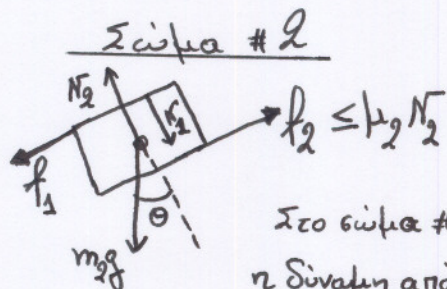 Σώμα # 2
N₂
N₁
f₂ ≤ μ₂ N₂
f₁
θ
Στο σώμα #
m₂g
η δύναμη από